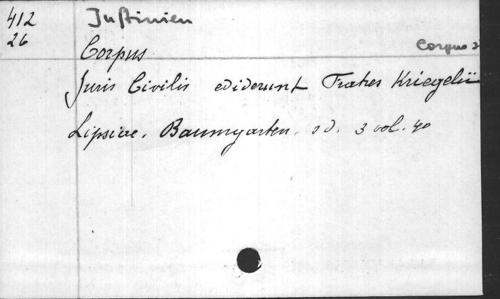 412
26
Justinien
Corpus
Corpus
Juris Civilis ediderunt Fratres Kriegelii
Lipsiae. Baumgarten. sd. 3 vol. 4o